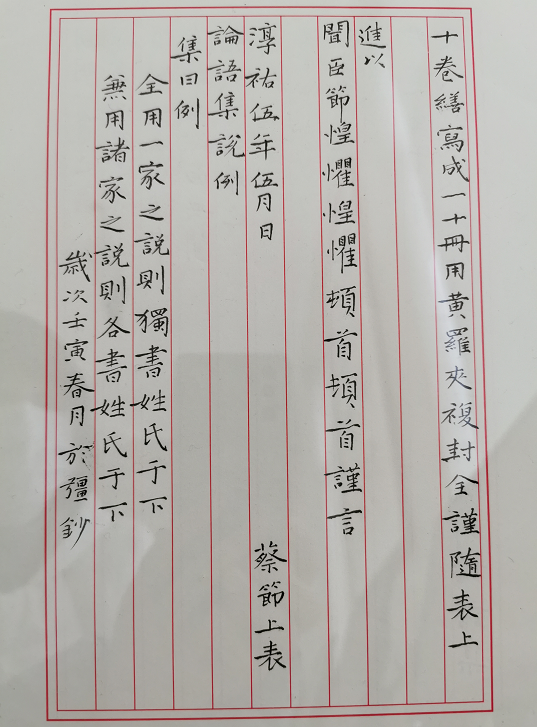 十卷繕寫成一十冊用黄羅夾複封全謹隨表上
進以
聞臣節惶懼惶懼頓首頓首謹言
淳祐伍年伍月日
蔡節上表
論語集說例
集曰例
全用一家之說則獨書姓氏于下
兼用諸家之說則各書姓氏于下
歲次壬寅春月於彊鈔